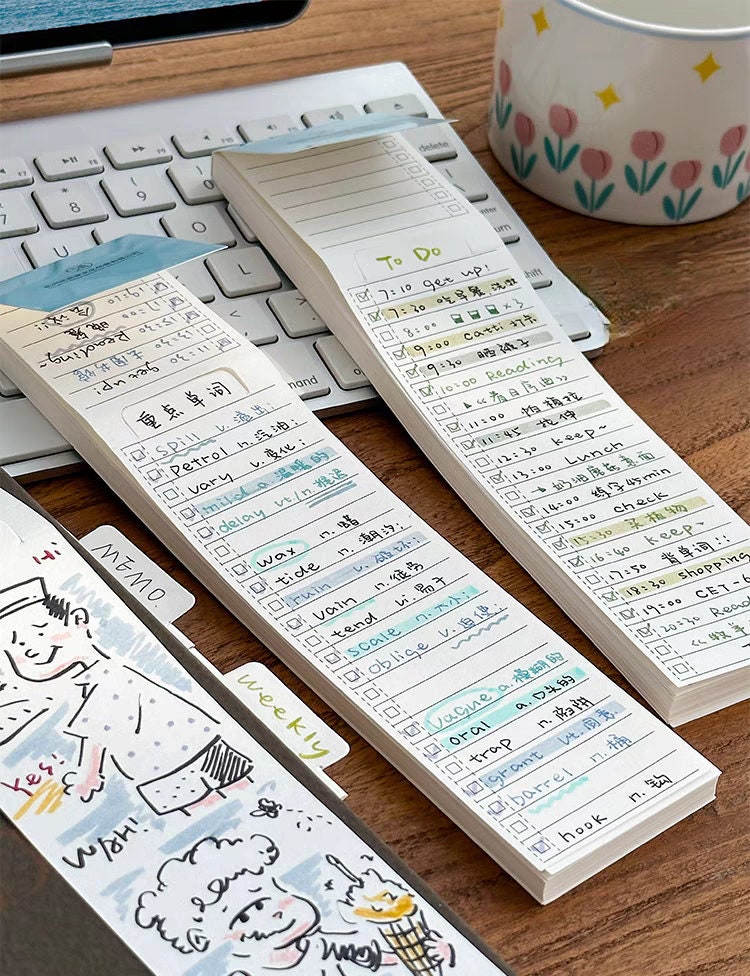 To Do
7:10 get up!
7:30 吃早餐 洗漱
8:00 ×3
9:00 Catti 打卡
9:30 晒被子
10:00 Reading
《春日序曲》
11:00
11:45 拉伸
12:30 keep~
13:00 Lunch
奶油蘑菇意面
14:00 练字45min
15:00 check
15:30 买植物
16:40 keep~
17:50 背单词!!
18:30 shopping
19:00 CET-6
20:30 Read
get up!
Reading~
重点单词
spill v.溢出;
petrol n.汽油;
vary v.变化;
mild a.温暖的
delay vt/n.推迟
wax n.蜡
tide n.潮汐;
ruin v.破坏;
vain n.徒劳
tend vi.易于
scale n.大小;
oblige v.迫使;
vague a.模糊的
oral a.口头的
trap n.陷阱
grant vt.同意
barrel n.桶
hook n.钩
MEMO.
weekly
Hi
Yes!
Wah!
delete
shift